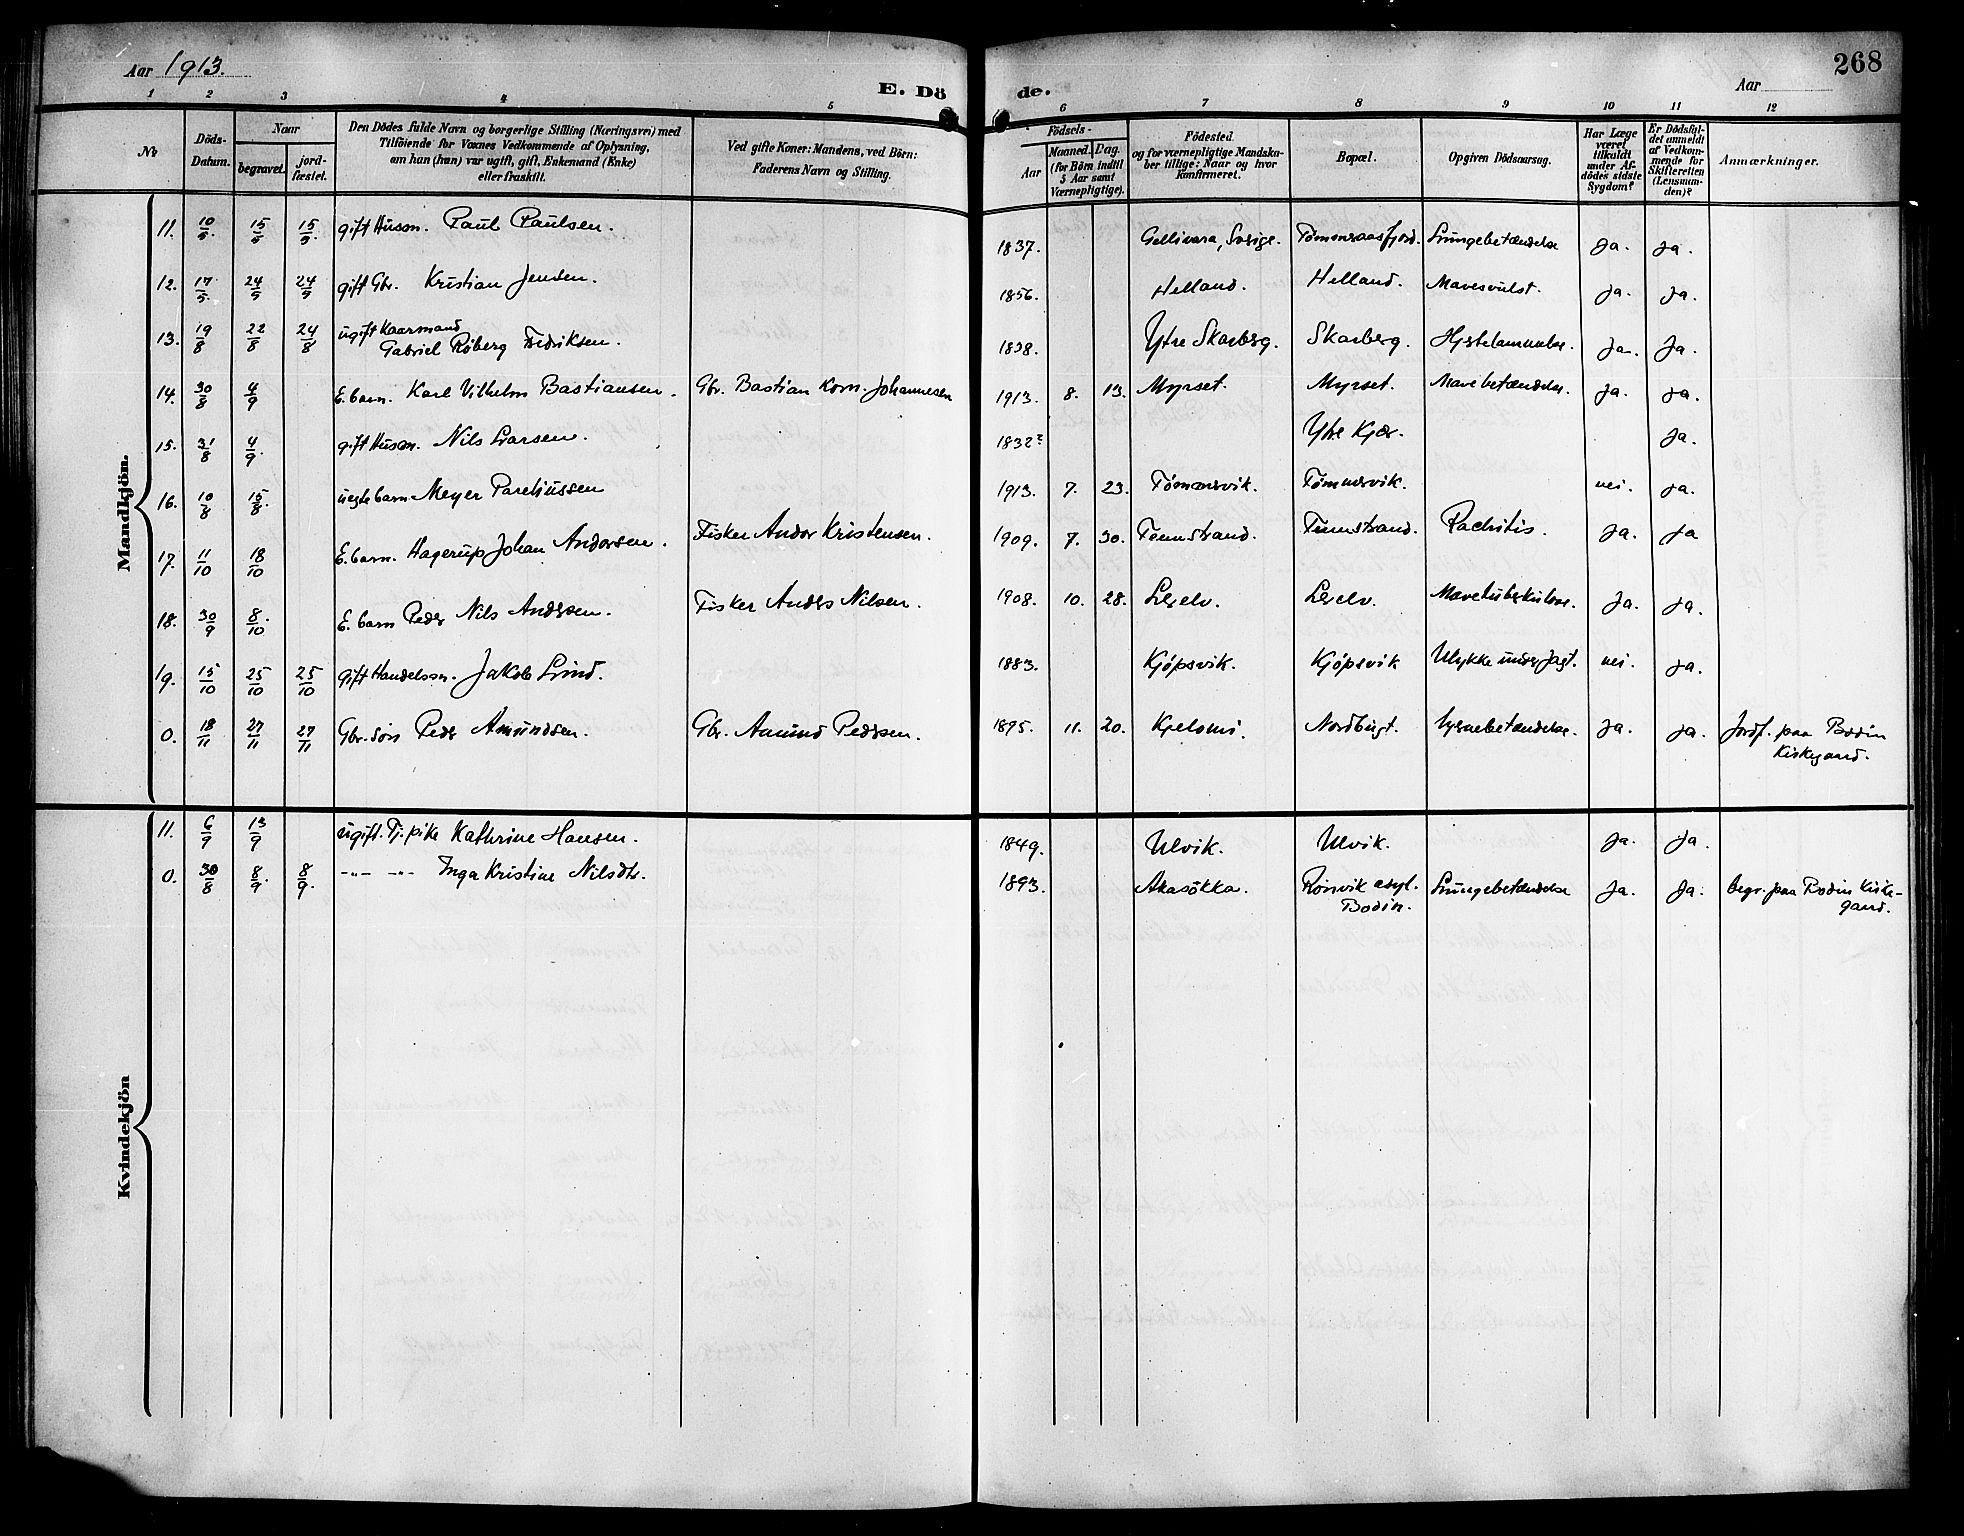 268
Aar 1913.
E. Döde.
Aar
1 2 3 4 5 6 7 8 9 10 11 12
No
Döds-Datum.
Naar
begravet.
jord-fæstet.
Den Dödes fulde Navn og borgerlige Stilling (Næringsvei) med
Tilföiende for Voxnes Vedkommende af Oplysning,
om han (hun) var ugift, gift, Enkemand (Enke)
eller fraskilt.
Ved gifte Koner: Mandens, ved Börn:
Faderens Navn og Stilling.
Födsels-
Aar
Maaned. Dag.
(for Börn indtil
5 Aar samt
Værnepligtige).
Födested
og for værnepligtige Mandska-
ber tillige: Naar og hvor
konfirmeret.
Bopæl.
Opgiven Dödsaarsag.
Har Læge
været
tilkaldt
under Af-
dödes sidste
Sygdom?
Er Dödsfal-
det anmeldt
af Vedkom-
mende for
Skifteretten
(Lensman-
den)?
Anmærkninger.
Mandkjön.
11. 10/5. 15/5 15/5. gift Husm. Paul Paulsen. 1837. Gellivara, Sverige. Tømmeraasfjord. Lungebetændelse Ja. Ja.
12. 17/5. 24/5 24/5 gift Gbr. Kristian Jensen. 1856. Helland. Helland. Mavesvulst. Ja. Ja.
13. 19/8 22/8 24/8 ugift Kaarmand
Gabriel Røberg Fredriksen. 1838. Ytre Skarberg. Skarberg. Hjertelammelse. Ja. Ja.
14. 30/8 4/9 E. barn. Karl Vilhelm Bastiansen. Gbr. Bastian Korn. Johannesen 1913. 8. 13. Myrset. Myrset. Mavebetændelse. Ja. Ja.
15. 31/8 4/9. gift Husm. Nils Larsen. 1832? Ytre Kjær. Ja.
16. 10/8 15/8. uegte barn Meyer Pareliussen 1913. 7. 23. Tømmervik. Tømmervik. nei. Ja.
17. 11/10 18/10 E. barn. Hagerup Johan Andorsen. Fisker Andor Kristensen. 1909. 7. 30. Tennstrand. Tennstrand. Rachitis. Ja. Ja
18. 30/9 8/10. E. barn Peder Nils Andersen. Fisker Anders Nilsen. 1908. 10. 28. Leselv. Leselv. Mavetuberkulose. Ja. Ja.
19. 15/10 25/10 25/10 gift Handelsm. Jakob Lind. 1883. Kjöpsvik. Kjöpsvik Ulykke under Jagt. nei. Ja.
0. 18/11 27/11 27/11 Gbr. sön Peder Amundsen. Gbr. Amund Pedersen. 1895. 11. 20. Nordbugt. Ja. Ja. Jordf. paa Bodin
Kirkegaard.
Kvindekjön
11. 6/9 13/9 ugift. Tj. pike Kathrine Hansen. 1849. Ulvik. Ulvik. Ja. Ja.
0. 30/8 8/9. 8/9. -"- -"- Inga Kristine Nilsdtr. 1893. Akasökka. Rönvik asyl.
Bodin. Lungebetændelse Ja. Ja. begr. paa Bodin Kirke-
gaard.